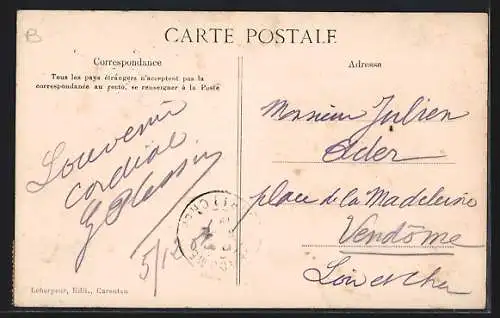 B
CARTE POSTALE
Correspondance
Tous les pays étrangers n'acceptent pas la
correspondance au recto, se renseigner à la Poste
Souvenir
cordial
G Plessin
5/12
Lehargeur, Edit., Carentan
Adresse
Monsieur Julien
Ader
place de la Madeleine
Vendôme
Loir et Cher